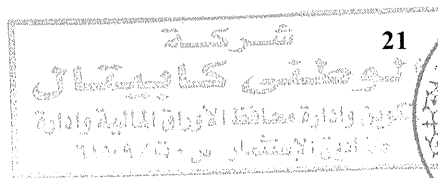 شركة
21
الوطنى كابيتال
تكوين وادارة محافظ الأوراق المالية وادارة
صناديق الإستثمار س.ت